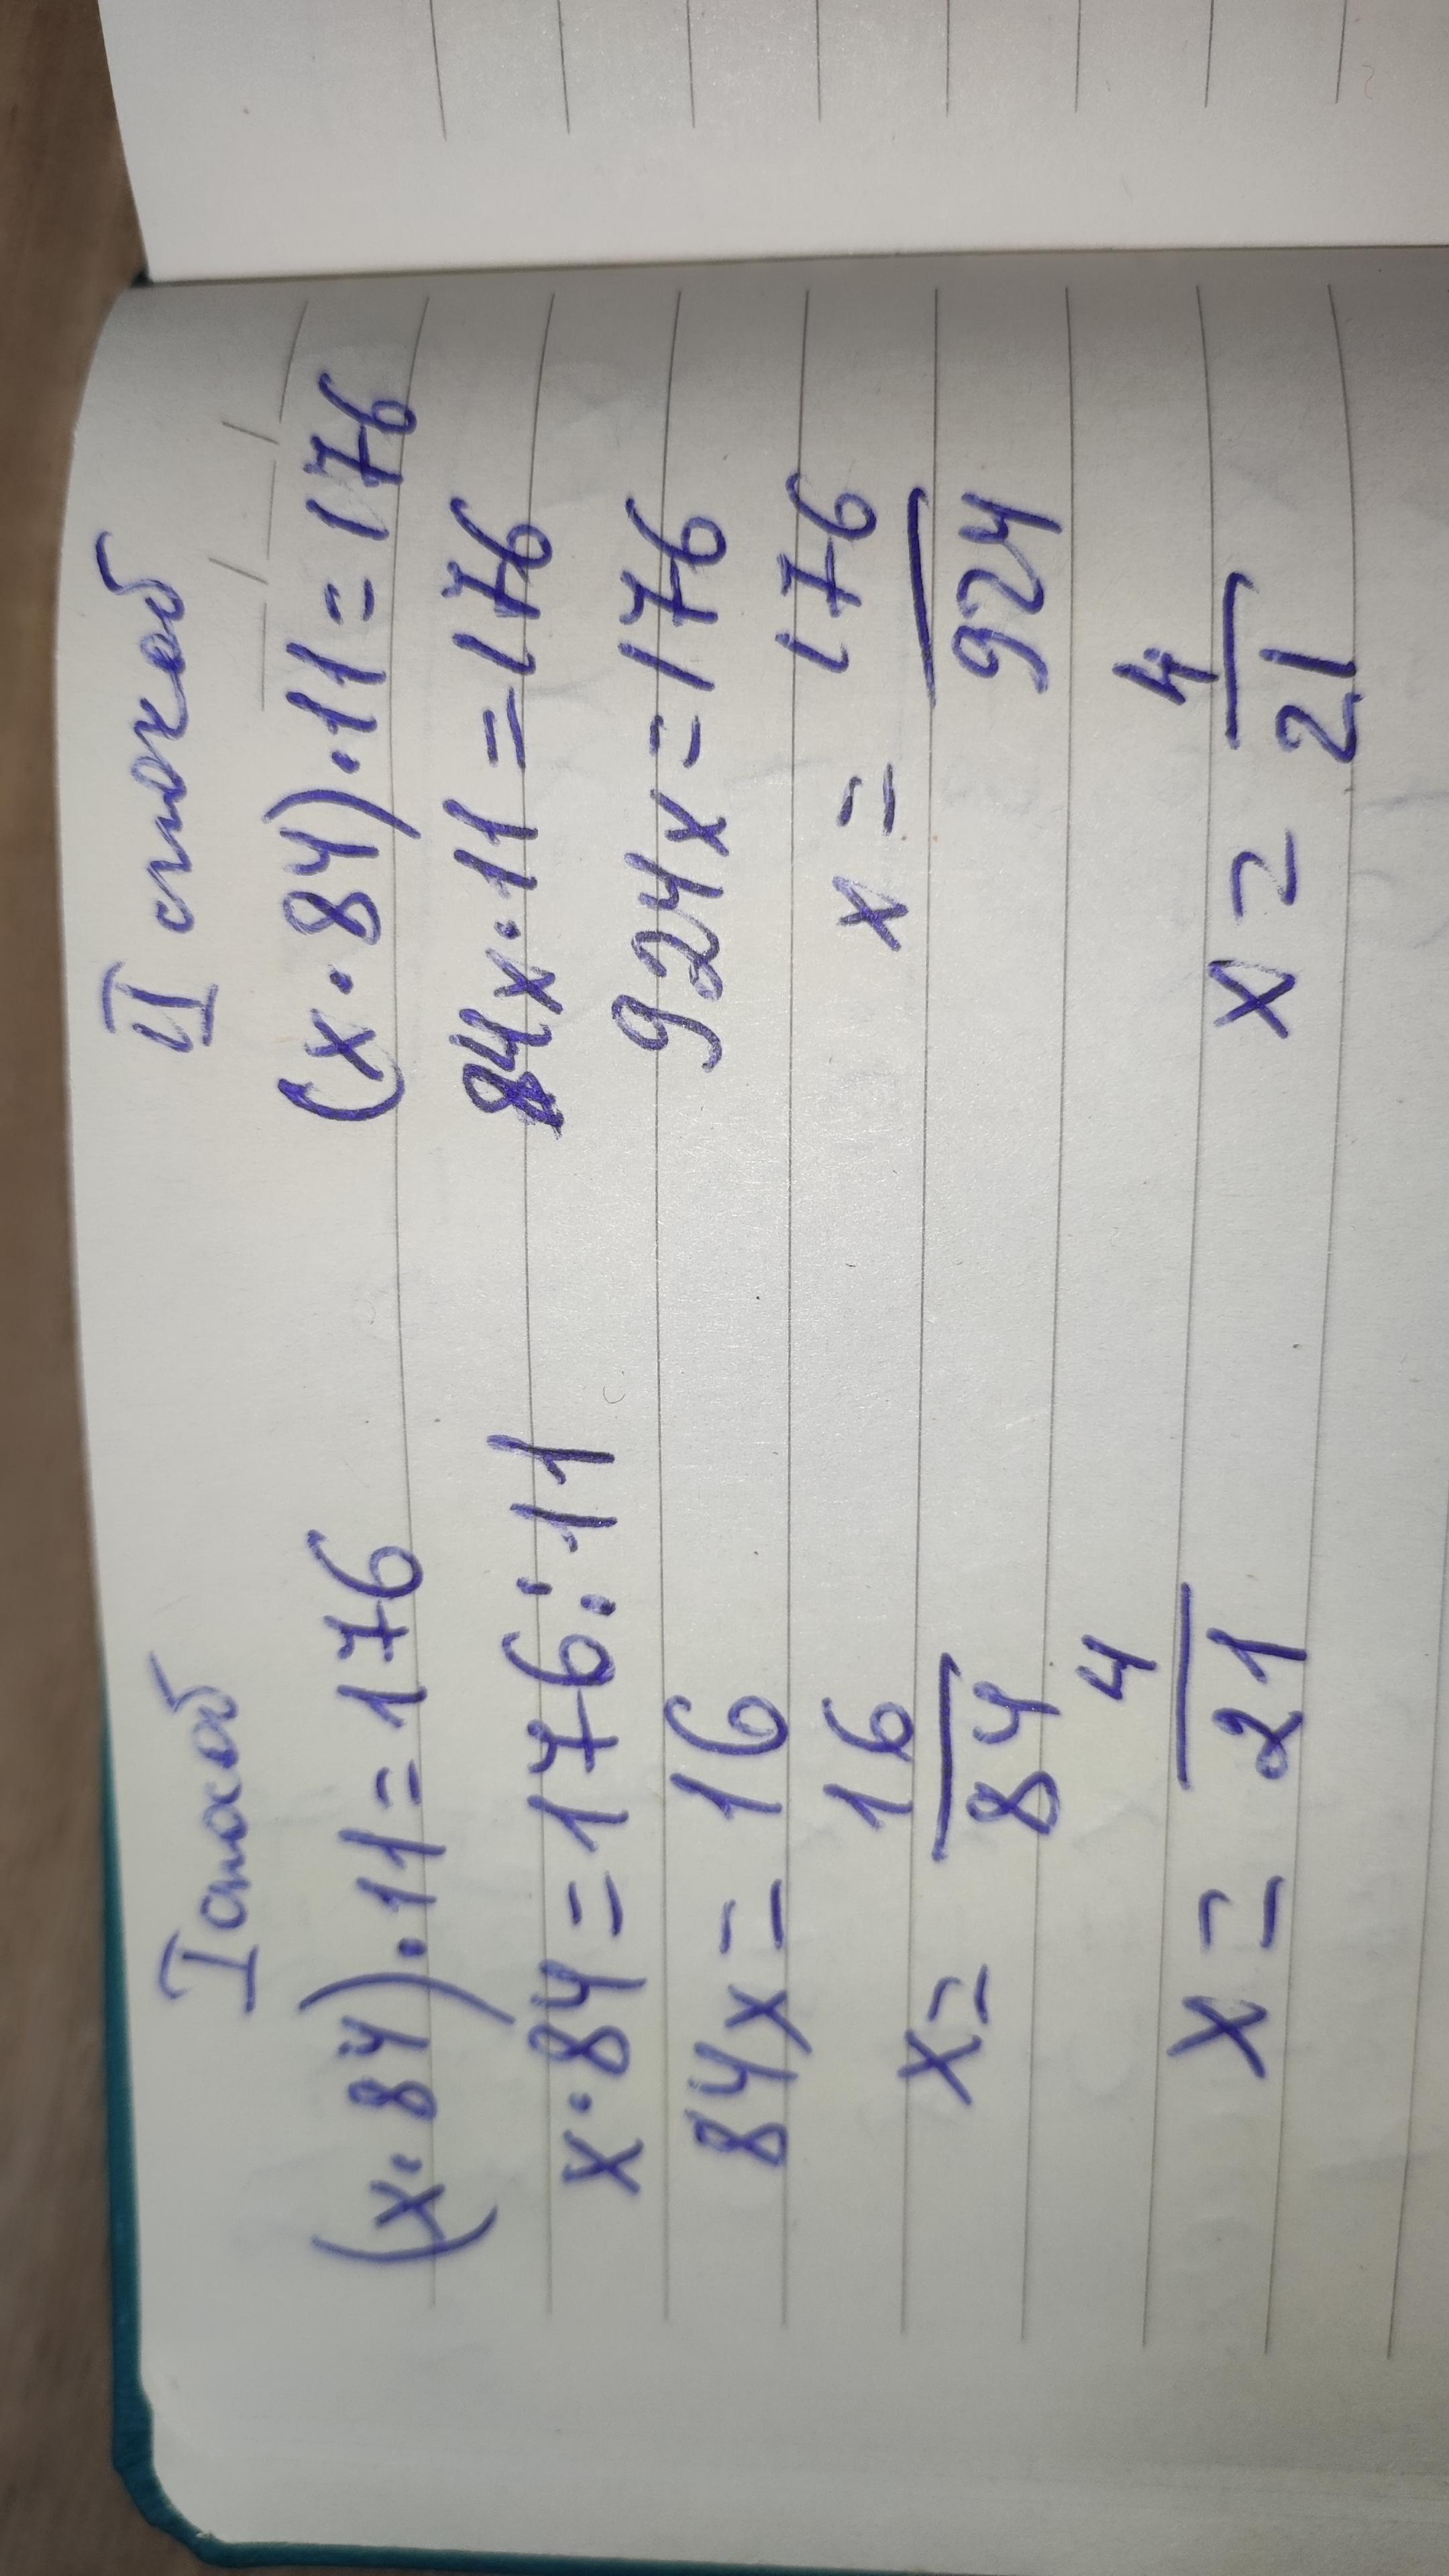 I способ
(x·84)·11=176
x·84=176:11
84x=16
x=16/84
x=4/21
II способ
(x·84)·11=176
84x·11=176
924x=176
x=176/924
x=4/21